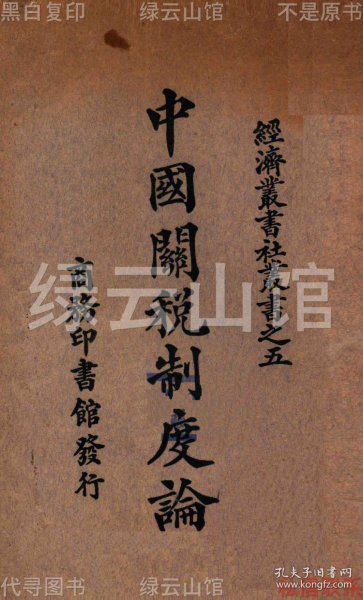 黑白复印
绿云山馆
不是原书
經濟叢書社叢書之五
中國關税制度論
商務印書館發行
绿云山馆
代寻图书
绿云山馆
孔夫子旧书网